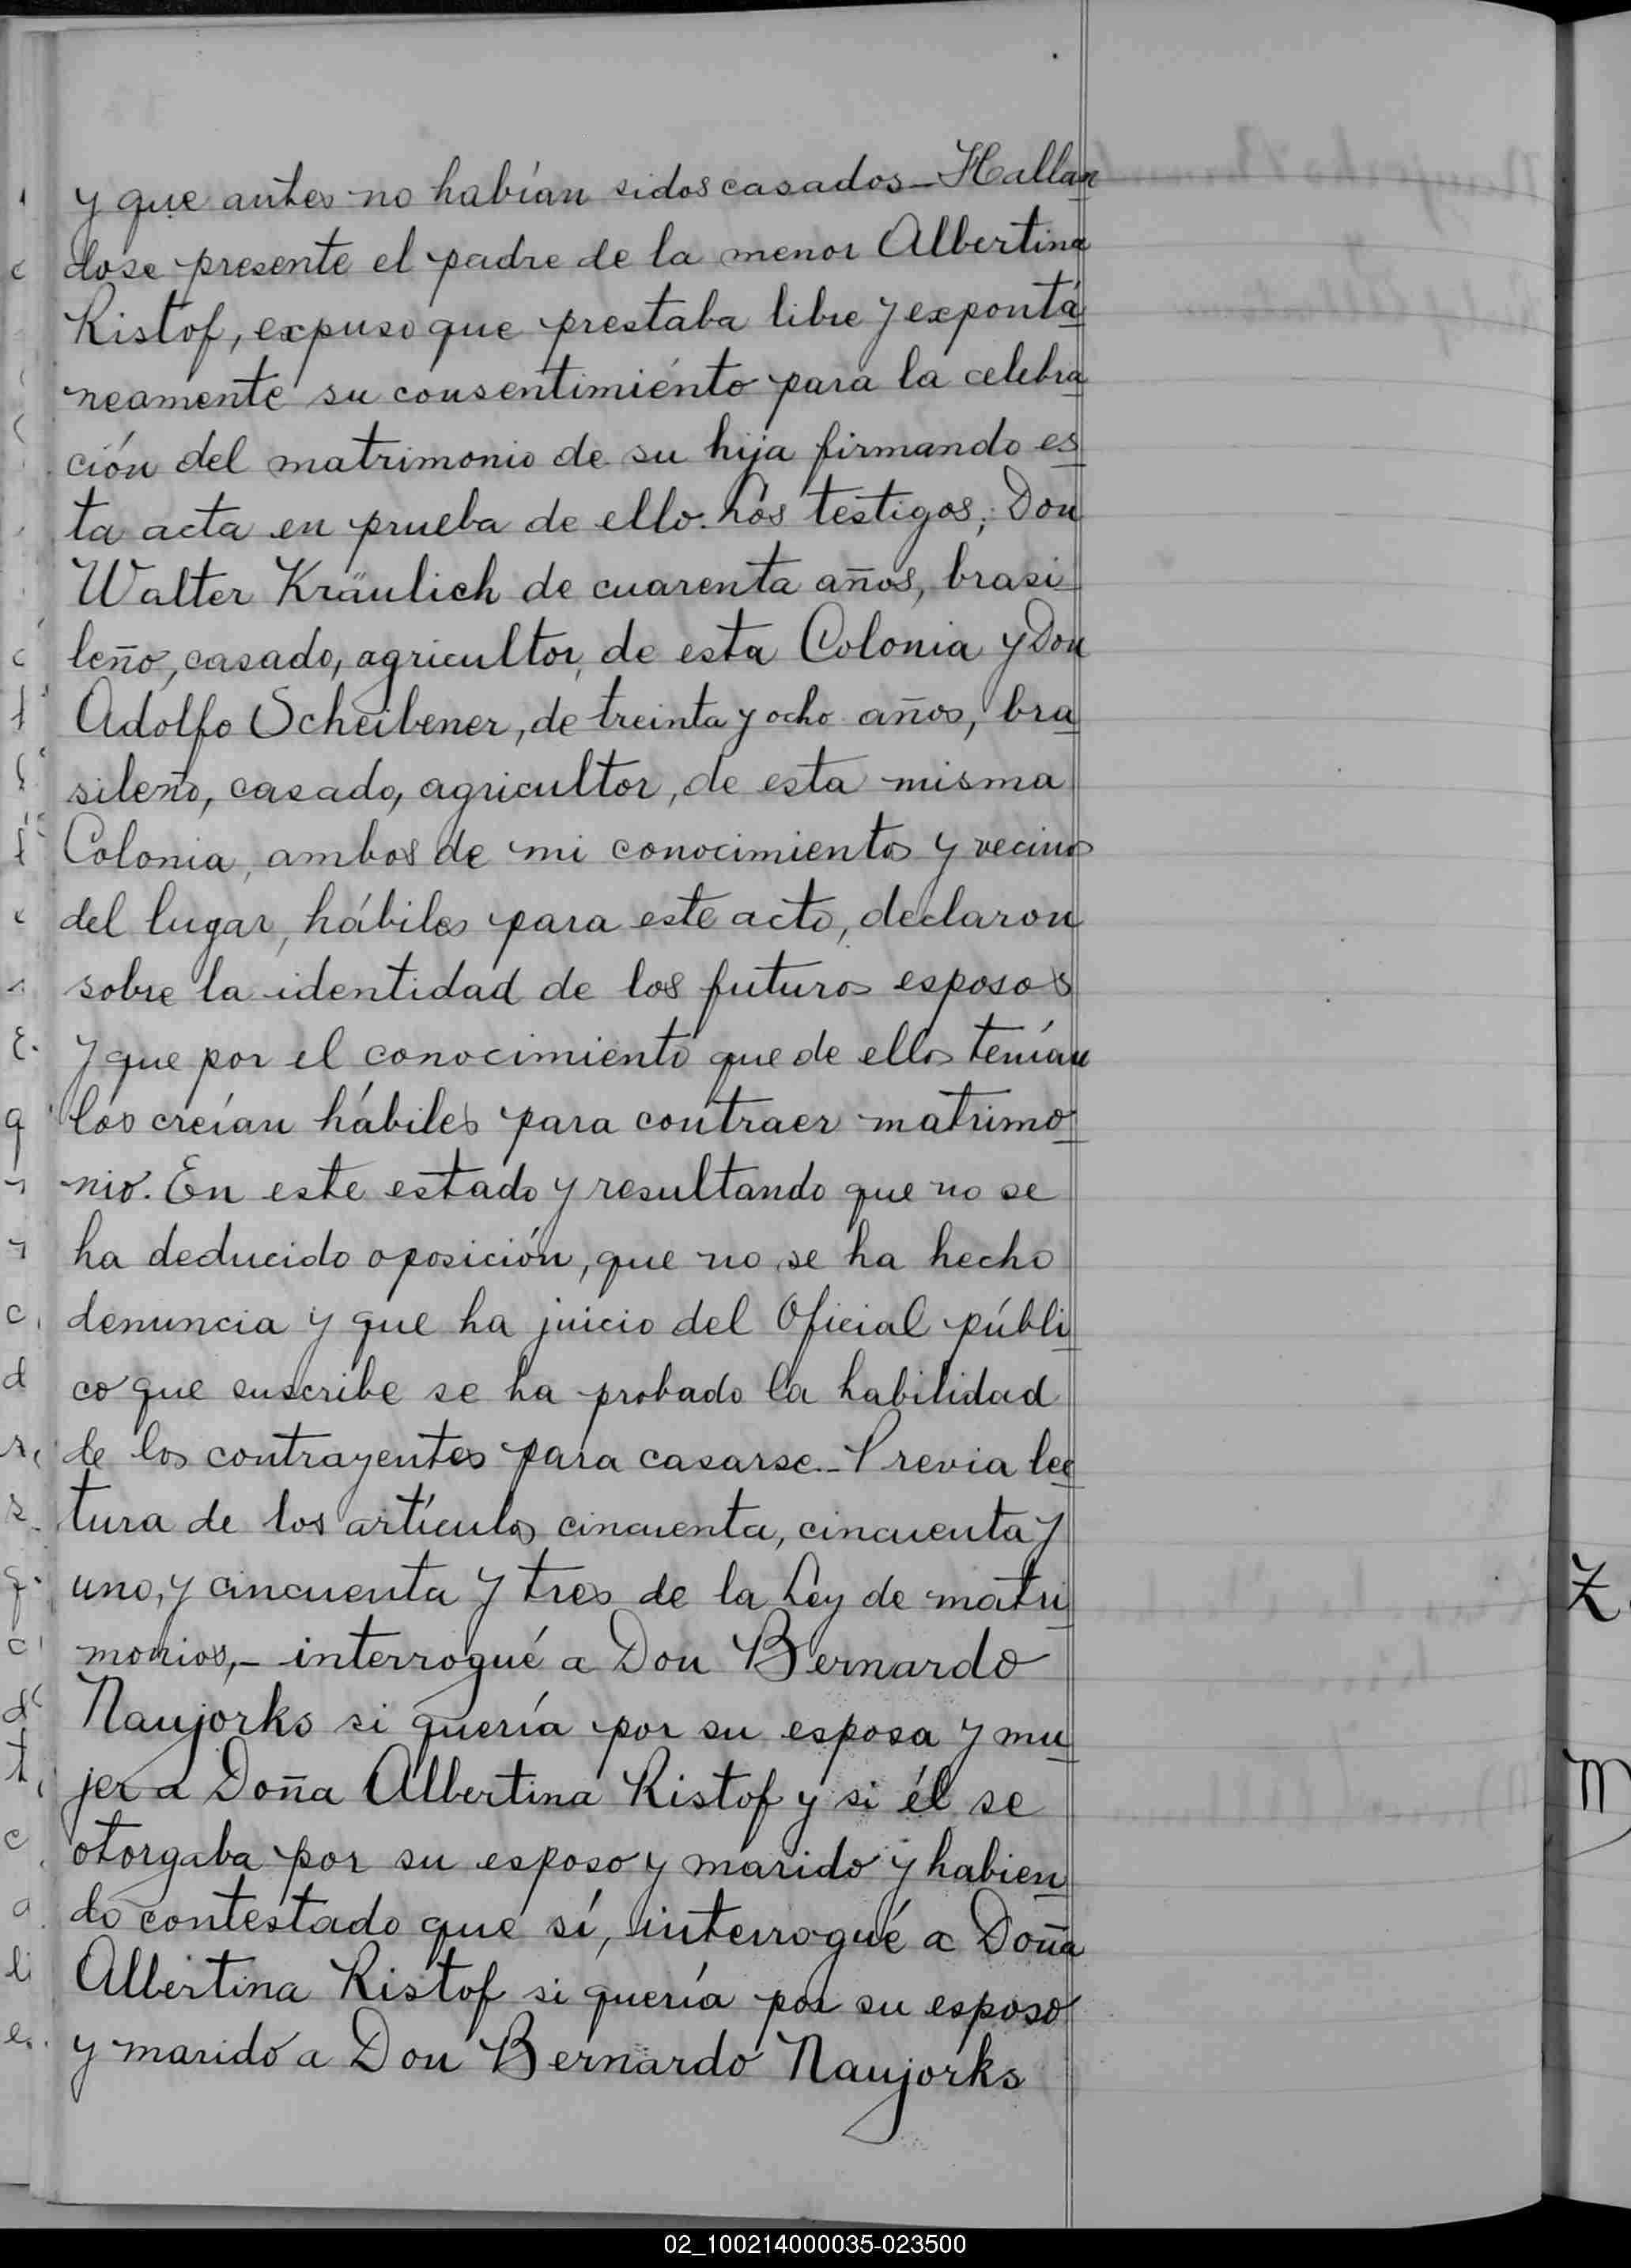 y que antes no habían sidos casados - Hallan
dose presente el padre de la menor Albertina
Ristof, expuso que prestaba libre y expontá
neamente su consentimiento para la celebra
ción del matrimonio de su hija firmando es
ta acta en prueba de ello. Los testigos; Don
Walter Kräulich de cuarenta años, brasi
leño, casado, agricultor, de esta Colonia y Don
Adolfo Scheibener, de treinta y ocho años, bra
sileño, casado, agricultor, de esta misma
Colonia, ambos de mi conocimiento y vecinos
del lugar, hábiles para este acto, declaron
sobre la identidad de los futuros esposos
y que por el conocimiento que de ellos tenían
los creían hábiles para contraer matrimo
nio. En este estado y resultando que no se
ha deducido oposición, que no se ha hecho
denuncia y que ha juicio del Oficial públi
co que suscribe se ha probado la habilidad
de los contrayentes para casarse. - Previa lec
tura de los artículos cincuenta, cincuenta y
uno, y cincuenta y tres de la Ley de matri
monios, - interrogué a Don Bernardo
Naujorks si quería por su esposa y mu
jer a Doña Albertina Ristof y si él se
otorgaba por su esposo y marido y habien
do contestado que sí, interrogué a Doña
Albertina Ristof si quería por su esposo
y marido a Don Bernardo Naujorks
02_100214000035-023500